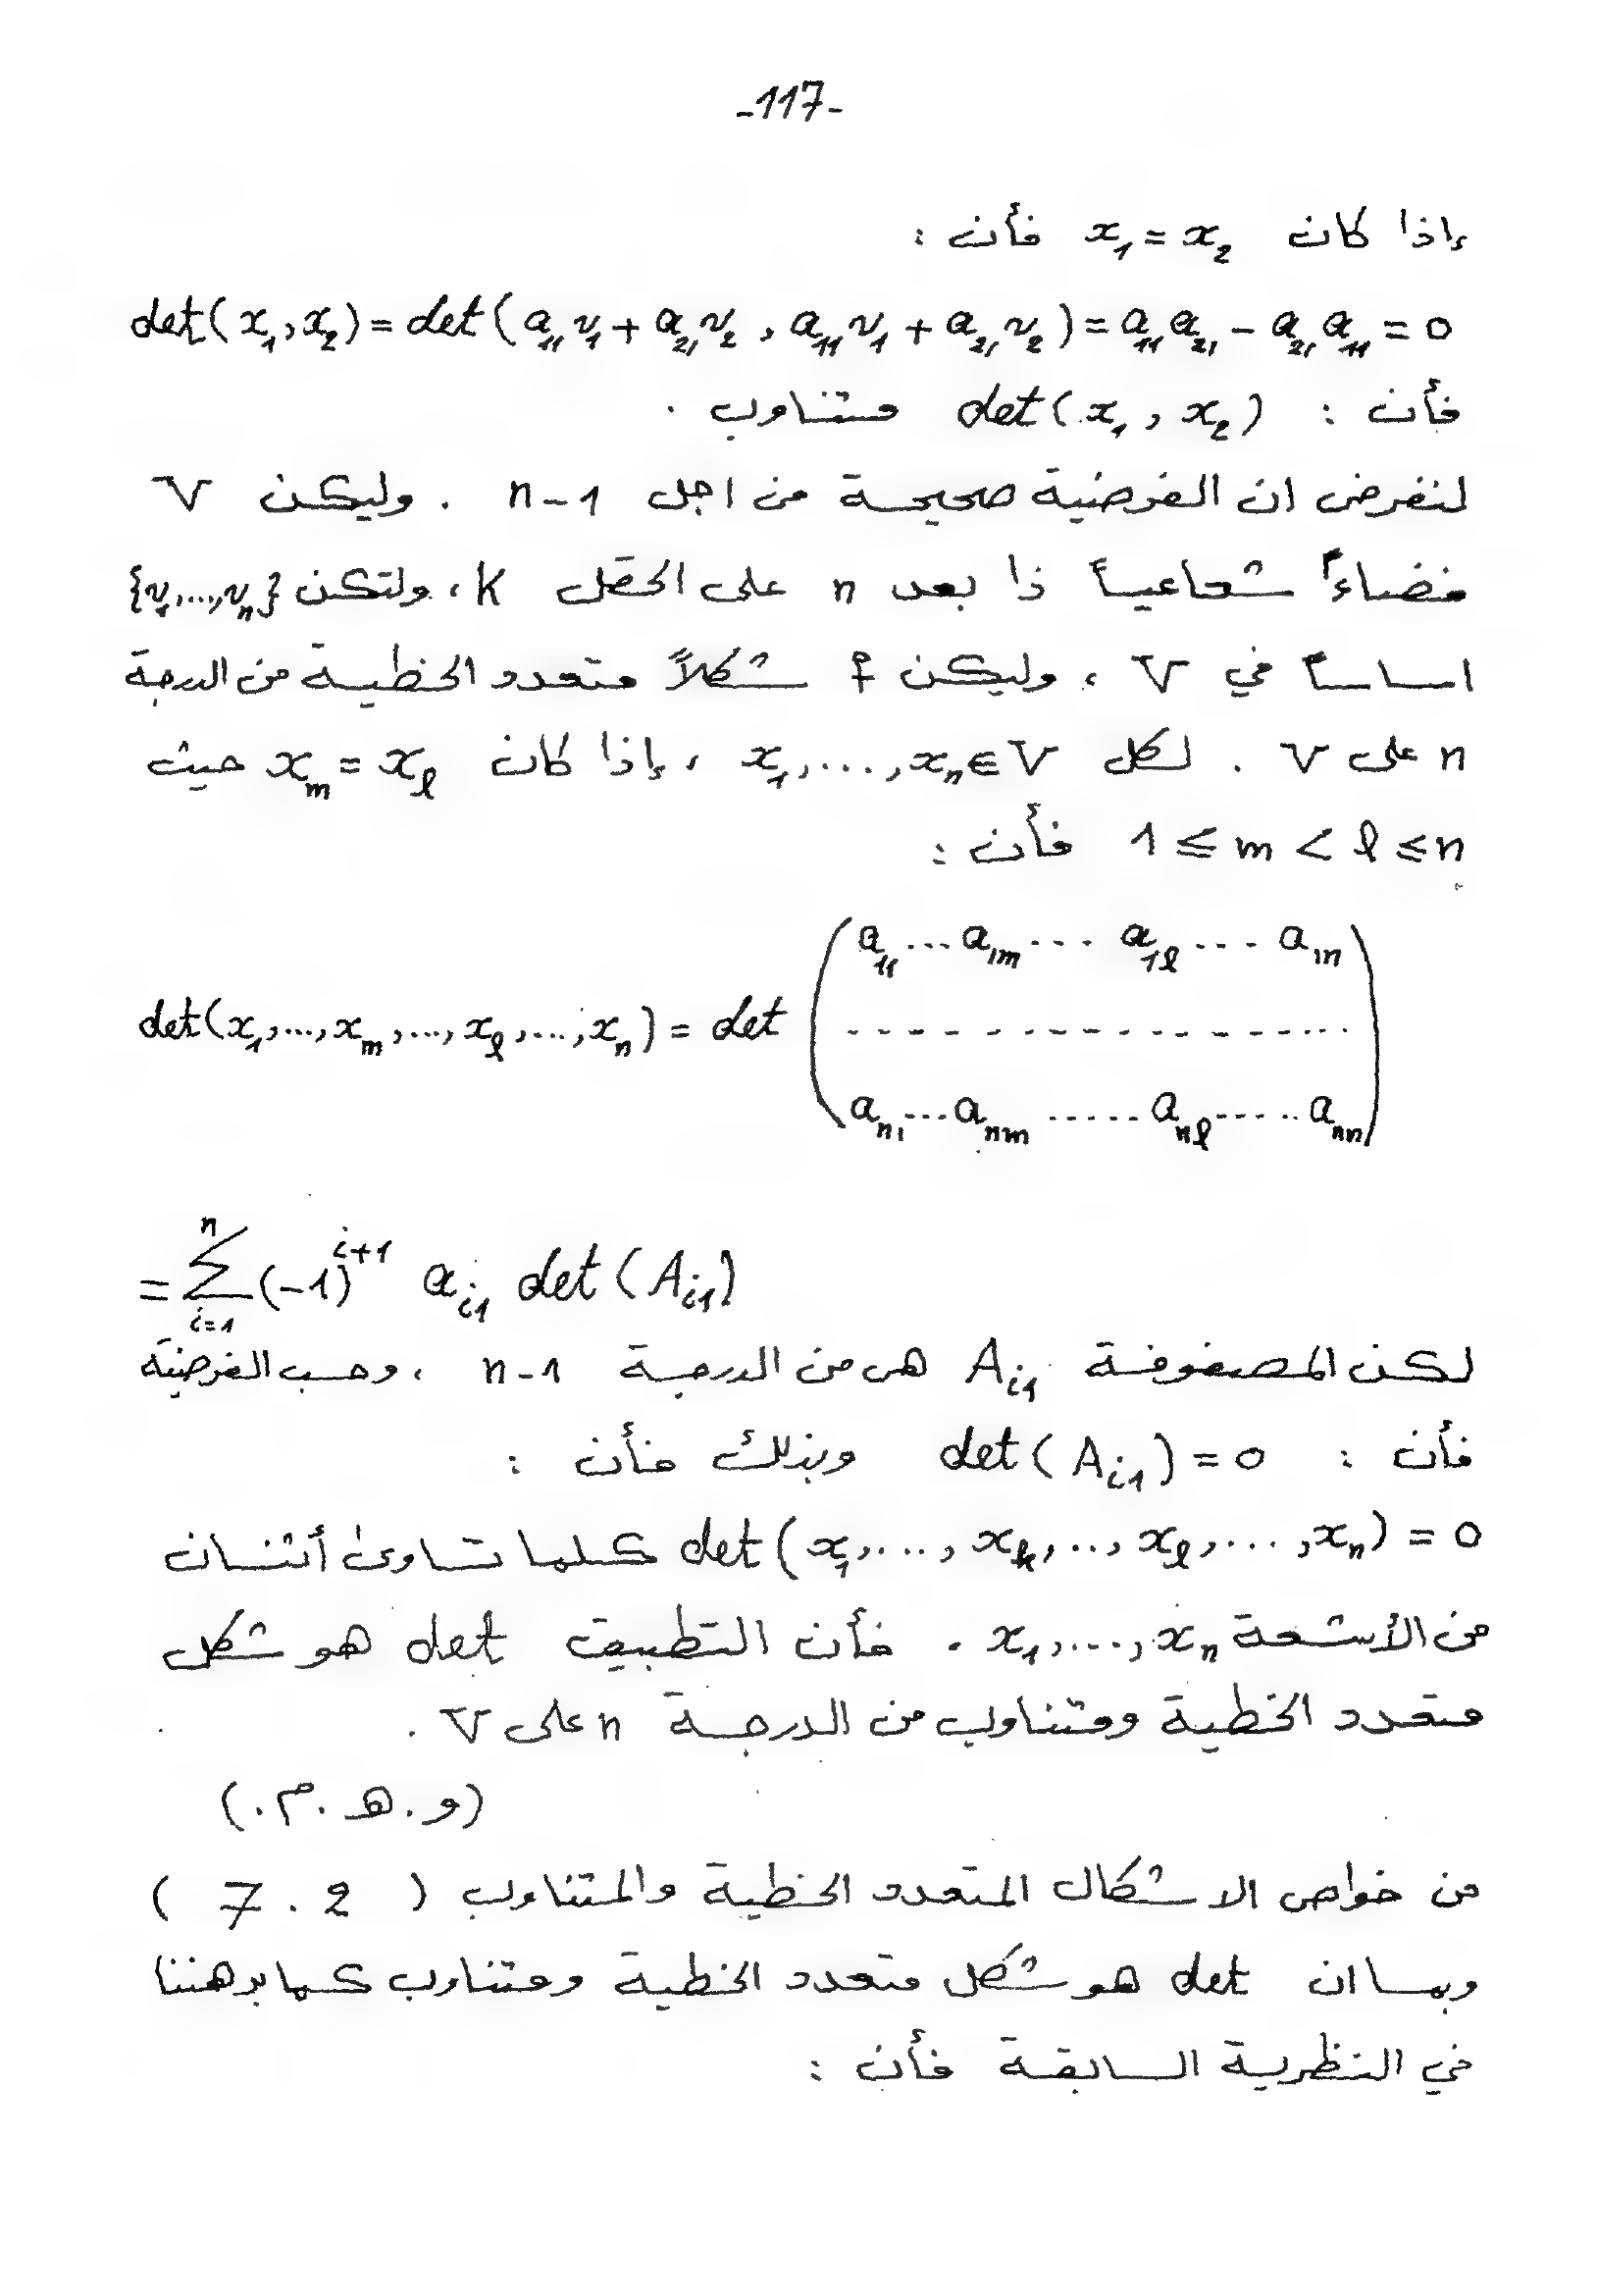 -117-
إذا كان x₁ = x₂ فأن :
det(x₁, x₂) = det(a₁₁v₁ + a₂₁v₂ , a₁₁v₁ + a₂₁v₂) = a₁₁a₂₁ - a₂₁a₁₁ = 0
فأن : det(x₁, x₂) متناوب .
لنفرض ان الفرضية صحيحة من اجل n-1 . وليكن V
فضاءً شعاعياً ذا بعد n على الحقل K ، ولتكن {v₁,...,vₙ}
اساساً في V ، وليكن f شكلاً متعدد الخطية من الدرجة
n على V . لكل x₁,...,xₙ∈V ، إذا كان xₘ = xₗ حيث
1 ≤ m < l ≤ n فأن :
a₁₁ ... a₁ₘ ... a₁ₗ ... a₁ₙ
det(x₁,...,xₘ,...,xₗ,...,xₙ) = det ( - - - - - - - - - - - - - )
aₙ₁ ... aₙₘ ..... aₙₗ ..... aₙₙ
= ∑ⁿᵢ₌₁ (-1)ⁱ⁺¹ aᵢ₁ det(Aᵢ₁)
لكن المصفوفة Aᵢ₁ هى من الدرجة n-1 ، وحسب الفرضية
فأن : det(Aᵢ₁) = 0 وبذلك فأن :
det(x₁,...,xₖ,..,xₗ,...,xₙ) = 0 كلما تساوى أثنان
من الأشعة x₁,...,xₙ . فأن التطبيق det هو شكل
متعدد الخطية ومتناوب من الدرجة n على V .
(و.هـ.م.)
من خواص الاشكال المتعدد الخطية والمتناوب ( 2 . 7 )
وبما ان det هو شكل متعدد الخطية ومتناوب كما برهننا
في النظرية السابقة فأن :